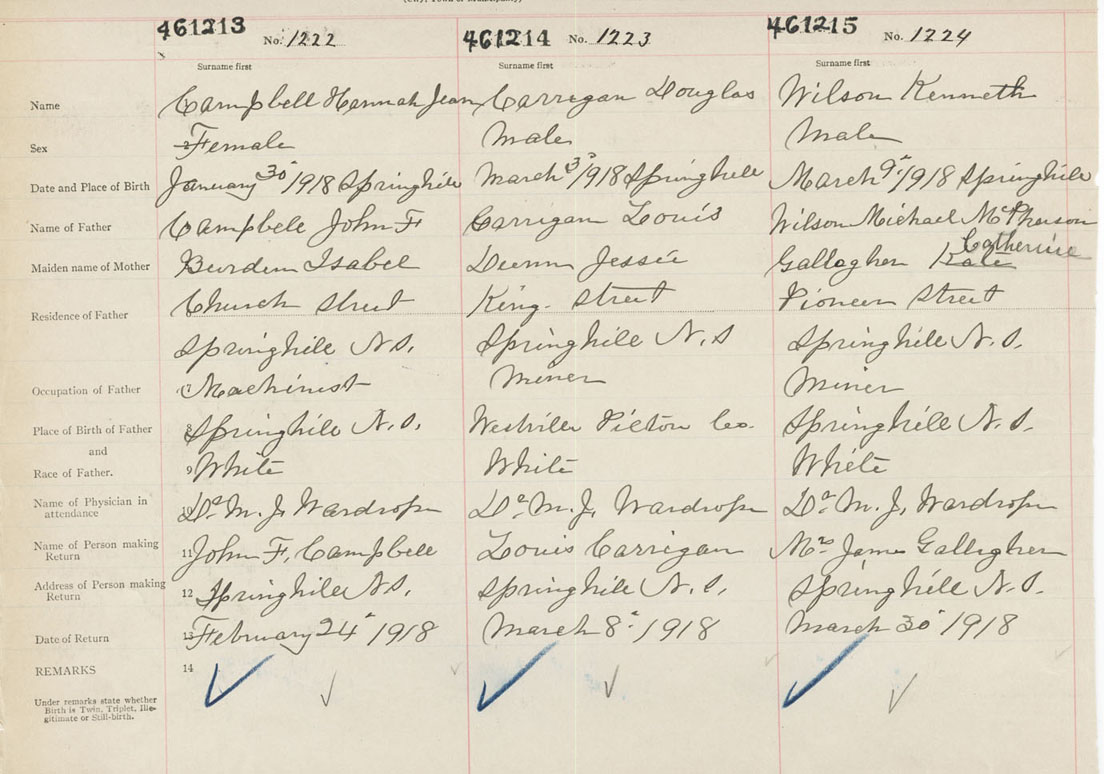 461213 No. 1222 461214 No. 1223 461215 No. 1224
Surname first Surname first Surname first
Name Campbell Hannah Jean Carrigan Douglas Wilson Kenneth
Sex Female Male Male
Date and Place of Birth January 30" 1918 Springhill March 3" 1918 Springhill March 9" 1918 Springhill
Name of Father Campbell John F Carrigan Louis Wilson Michael McPherson
Catherine
Maiden name of Mother Burden Isabel Jessie Gallagher Kate
Residence of Father Church Street King Street Pioneer Street
Springhill N.S. Springhill N.S Springhill N.S.
Occupation of Father 7 Machinist Miner Miner
Place of Birth of Father 8 Springhill N.S. Westville Pictou Co. Springhill N.S.
and
Race of Father. 9 White White White
Name of Physician in
attendance 10 Dr. M. J. Wardrope Dr. M. J. Wardrope Dr. M. J. Wardrope
Name of Person making
Return 11 John F. Campbell Louis Carrigan Mrs James Gallagher
Address of Person making
Return 12 Springhill N.S. Springhill N.S. Springhill N.S.
Date of Return 13 February 24" 1918 March 8" 1918 March 30" 1918
REMARKS 14
Under remarks state whether
Birth is Twin, Triplet, Ille-
gitimate or Still-birth.